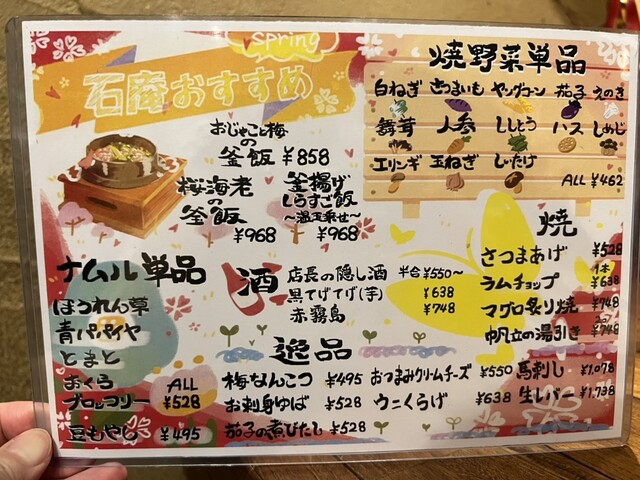 Spring
石庵おすすめ
おじゃこと梅
の
釜飯 ¥858
桜海老
の
釜飯
¥968
釜揚げ
しらすご飯
〜温玉乗せ〜
¥968
焼野菜単品
白ねぎ さつまいも ヤングコーン 茄子 えのき
舞茸 人参 ししとう ハス しめじ
エリンギ 玉ねぎ しいたけ
ALL ¥462
焼
さつまあげ ¥528
ラムチョップ 1本 ¥638
マグロ炙り焼 ¥748
帆立の湯引き ¥748
ナムル単品
ほうれん草
青パパイヤ
とまと
おくら
ブロッコリー
ALL
¥528
豆もやし ¥495
酒
店長の隠し酒 半合 ¥550〜
黒てげてげ(芋) ¥638
赤霧島 ¥748
逸品
梅なんこつ ¥495
お刺身ゆば ¥528
茄子の煮びたし ¥528
おつまみクリームチーズ ¥550
ウニくらげ ¥638
馬刺し ¥1,078
生レバー ¥1,738